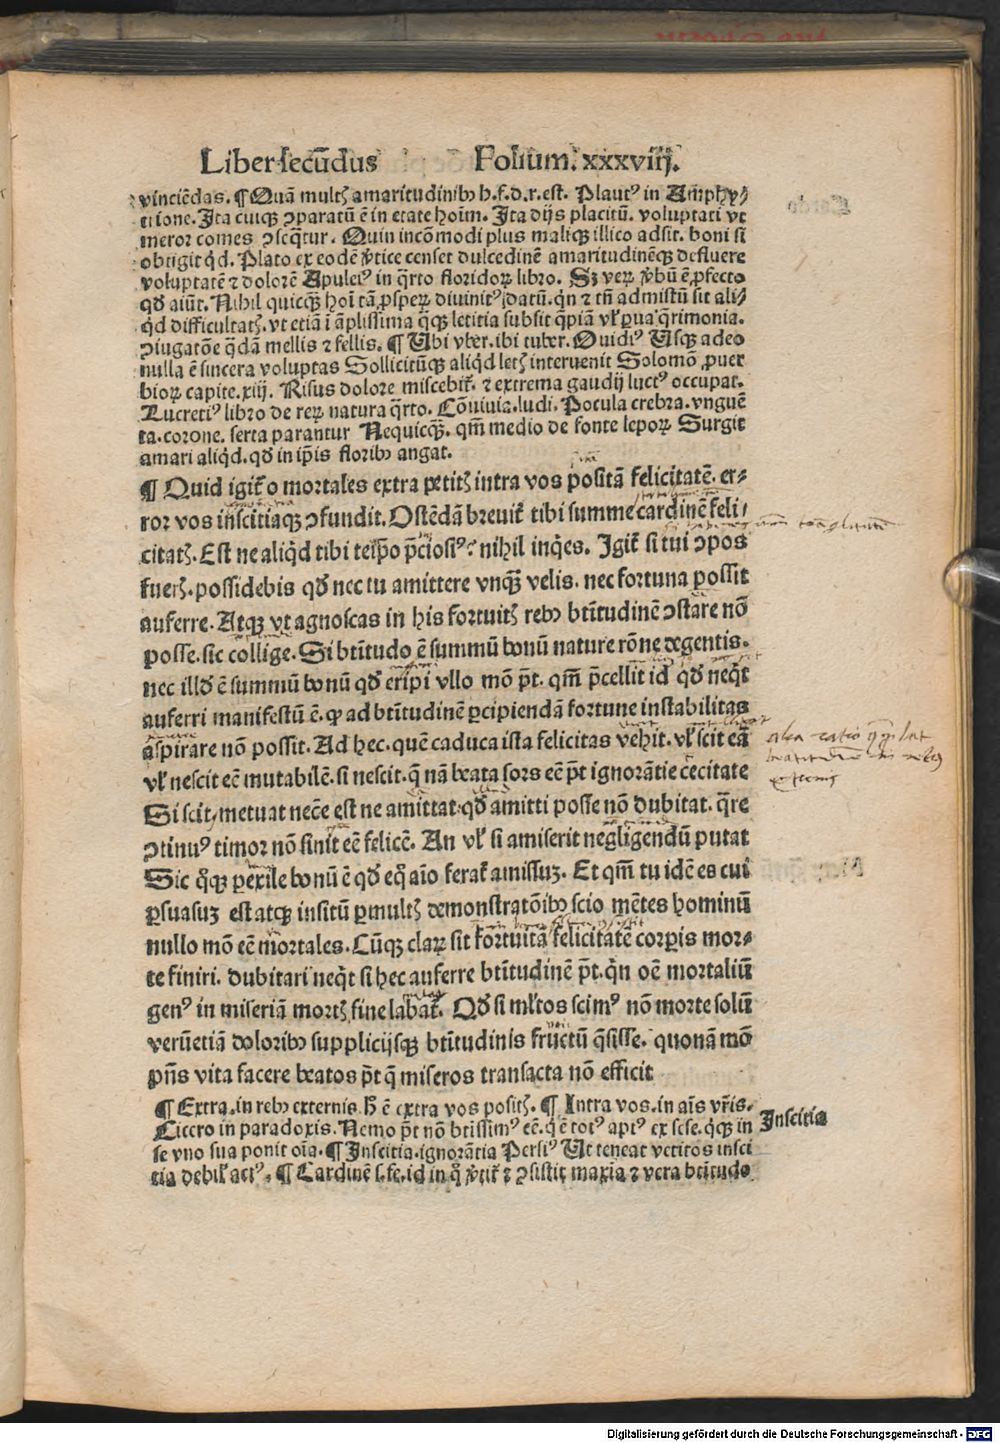 Liber secūdus Folium. xxxviij.
vinciēdas. ¶ Quā multꝭ amaritudinibꝰ h.f.d.r.est. Plautꝰ in Amphy⸗
trione. Ita cuiqꝫ ↄparatū ē in etate hoim. Ita dijs placitū. voluptati vt
meror comes ↄseq̄tur. Quin incōmodi plus maliqꝫ illico adsit. boni si
obtigit q̇d. Plato ex eodē v̓tice censet dulcedinē amaritudinēqꝫ defluere
voluptatē ⁊ dolorē Apuleiꝰ in q̄rto floridoꝝ libro. Sꝫ veꝝ v̓bū ē ꝓfecto
qd̓ aiūt. Nihil quicqꝫ hoī tā ꝓspeꝝ diuinitꝰ datū. qn̄ ⁊ tn̄ admistū sit ali⸗
q̇d difficultatꝭ. vt etiā ī āplissima q̄qꝫ letitia subsit q̄piā vl̓ ꝑua q̄rimonia.
ↄiugatōe q̄dā mellis ⁊ fellis. ¶ Ubi vber. ibi tuber. Ouidiꝰ Usqꝫ adeo
nulla ē sincera voluptas Sollicitūqꝫ aliq̇d letꝭ interuenit Solomō ꝓuer
bioꝝ capite. xiij. Risus dolore miscebit̓. ⁊ extrema gaudij luctꝰ occupat.
Lucretiꝰ libro de reꝝ natura q̄rto. Cōuiuia. ludi. Pocula crebra. vnguē
ta. corone. serta parantur Nequicqꝫ. qm̄ medio de fonte lepoꝝ Surgit
amari aliq̇d. qd̓ in ip̄is floribꝰ angat.
¶ Quid igit̓ o mortales extra petitꝭ intra vos positā felicitatē. er⸗
ror vos inscitiaqꝫ ↄfundit. Ostēdā breuit̓ tibi summe cardinē feli⸗
citatꝭ. Est ne aliq̇d tibi teip̄o p̄ciosiꝰ? nihil inq̇es. Igit̓ si tui ↄpos
fuerꝭ. possidebis qd̓ nec tu amittere vnqꝫ velis. nec fortuna possit
auferre. Atqꝫ vt agnoscas in his fortuitꝭ rebꝰ bt̄itudinē ↄstare nō
posse. sic collige. Si bt̄itudo ē summū bonū nature rōne degentis.
nec illd̓ ē summū bonū qd̓ eripi vllo mō pt̄. qm̄ p̄cellit id qd̓ neq̇t
auferri manifestū ē. ꝙ ad bt̄itudinē ꝑcipiendā fortune instabilitas
aspirare nō possit. Ad hec. quē caduca ista felicitas vehit. vl̓ scit eā
vl̓ nescit eē mutabilē. si nescit. q̄ nā beata sors eē pt̄ ignorātie cecitate
Si scit, metuat necē est ne amittat. qd̓ amitti posse nō dubitat. q̄re
ↄtinuꝰ timor nō sinit eē felicē. An vl̓ si amiserit negligendū putat
Sic q̊qꝫ ꝑexile bonū ē qd̓ eq̊ aīo ferat̓ amissuꝫ. Et qm̄ tu idē es cui
ꝑsuasuꝫ est atqꝫ insitū ꝑmultꝭ demonstratōibꝰ scio mētes hominū
nullo mō eē mortales. Cūqꝫ claꝝ sit fortuitā felicitatē corꝑis mor⸗
te finiri. dubitari neq̇t si hec auferre bt̄itudinē pt̄. qn̄ oē mortaliū
genꝰ in miseriā mortꝭ fine labat̓. Qd̓ si ml̓tos scimꝰ nō morte solū
verūetiā doloribꝰ supplicijsqꝫ bt̄itudinis fructū q̄sisse. quonā mō
pn̄s vita facere beatos pt̄ q̄ miseros transacta nō efficit
¶ Extra. in rebꝰ externis. h̄ ē extra vos positꝭ. ¶ Intra vos. in aīs vr̄is.
Cicero in paradoxis. Nemo pt̄ nō btissimꝰ eē. q̇ ē totꝰ aptꝰ ex sese. q̇qꝫ in
se vno sua ponit oīa. ¶ Inscitia. ignorātia Persiꝰ Ut teneat vetitos insci
tia debil̓ actꝰ. ¶ Cardinē s. fe. id in q̊ v̓tit̓ ⁊ ↄsistit maxīa ⁊ vera btitudo
Inscitia
Digitalisierung gefördert durch die Deutsche Forschungsgemeinschaft - DFG